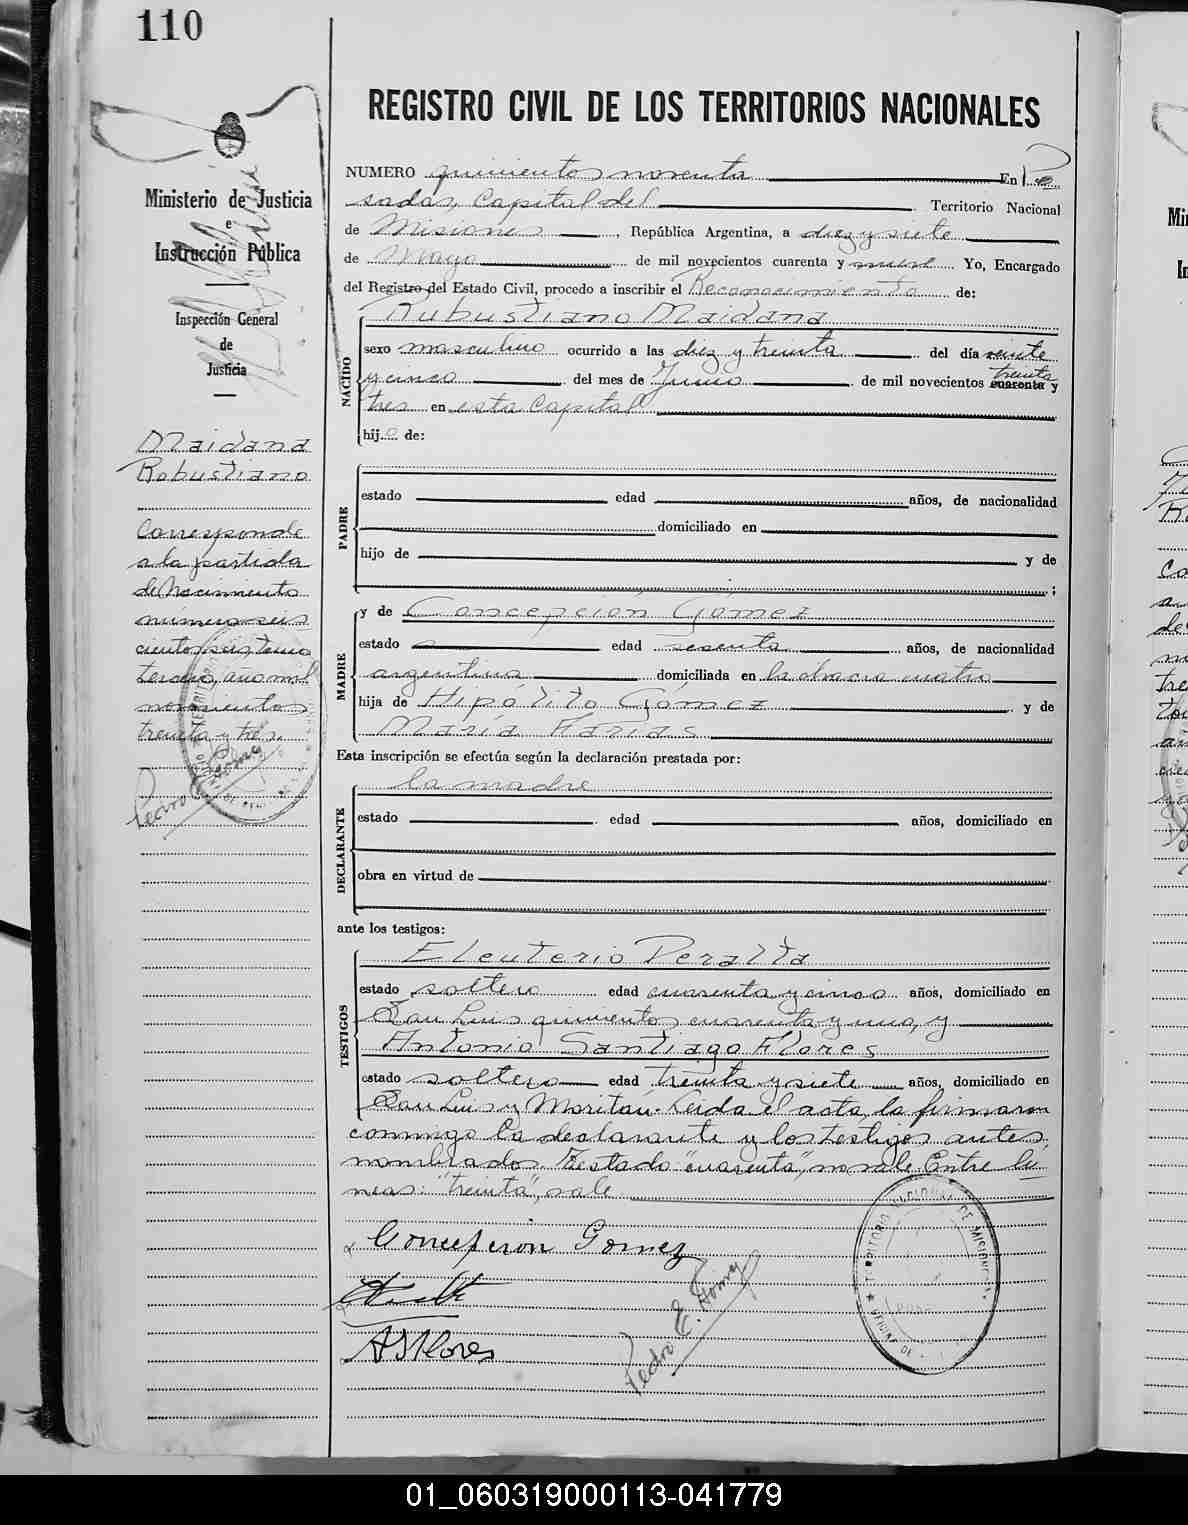 110
REGISTRO CIVIL DE LOS TERRITORIOS NACIONALES
Ministerio de Justicia
e
Instrucción Pública
Inspección General
de
Justicia
Maidana
Robustiano
Corresponde
a la partida
de Nacimiento
número seis
cientos seis, tomo
tercero, año mil
novecientos
treinta y tres.
Pedro E. Gómez
NUMERO quinientos noventa En Po
sadas, Capital del Territorio Nacional
de Misiones, República Argentina, a diez y siete
de Mayo de mil novecientos cuarenta y nueve Yo, Encargado
del Registro del Estado Civil, procedo a inscribir el Reconocimiento de:
NACIDO
Rubustiano Maidana
sexo masculino ocurrido a las diez y treinta del día veinte
y cinco del mes de Junio de mil novecientos cuarenta treinta y
tres en esta Capital
hijo de:
PADRE
estado edad años, de nacionalidad
domiciliado en
hijo de y de
;
MADRE
y de Concepción Gómez
estado s edad sesenta años, de nacionalidad
argentina domiciliada en la chacra cuatro
hija de Hipólito Gómez y de
María Farias
Esta inscripción se efectúa según la declaración prestada por:
DECLARANTE
la madre
estado edad años, domiciliado en
obra en virtud de
ante los testigos:
TESTIGOS
Eleuterio Peralta
estado soltero edad cuarenta y cinco años, domiciliado en
San Luis quinientos cuarenta y uno, y
Antonio Santiago Flores
estado soltero edad treinta y siete años, domiciliado en
San Luis y Moritán. Leida el acta, la firmaron
conmigo la declarante y los testigos antes
nombrados. Testado "cuarenta", no vale. Entre lí
neas: "treinta", vale
Concepcion Gomez
A S Flores
Pedro E. Gómez
TERRITORIO NACIONAL DE MISIONES
01_060319000113-041779